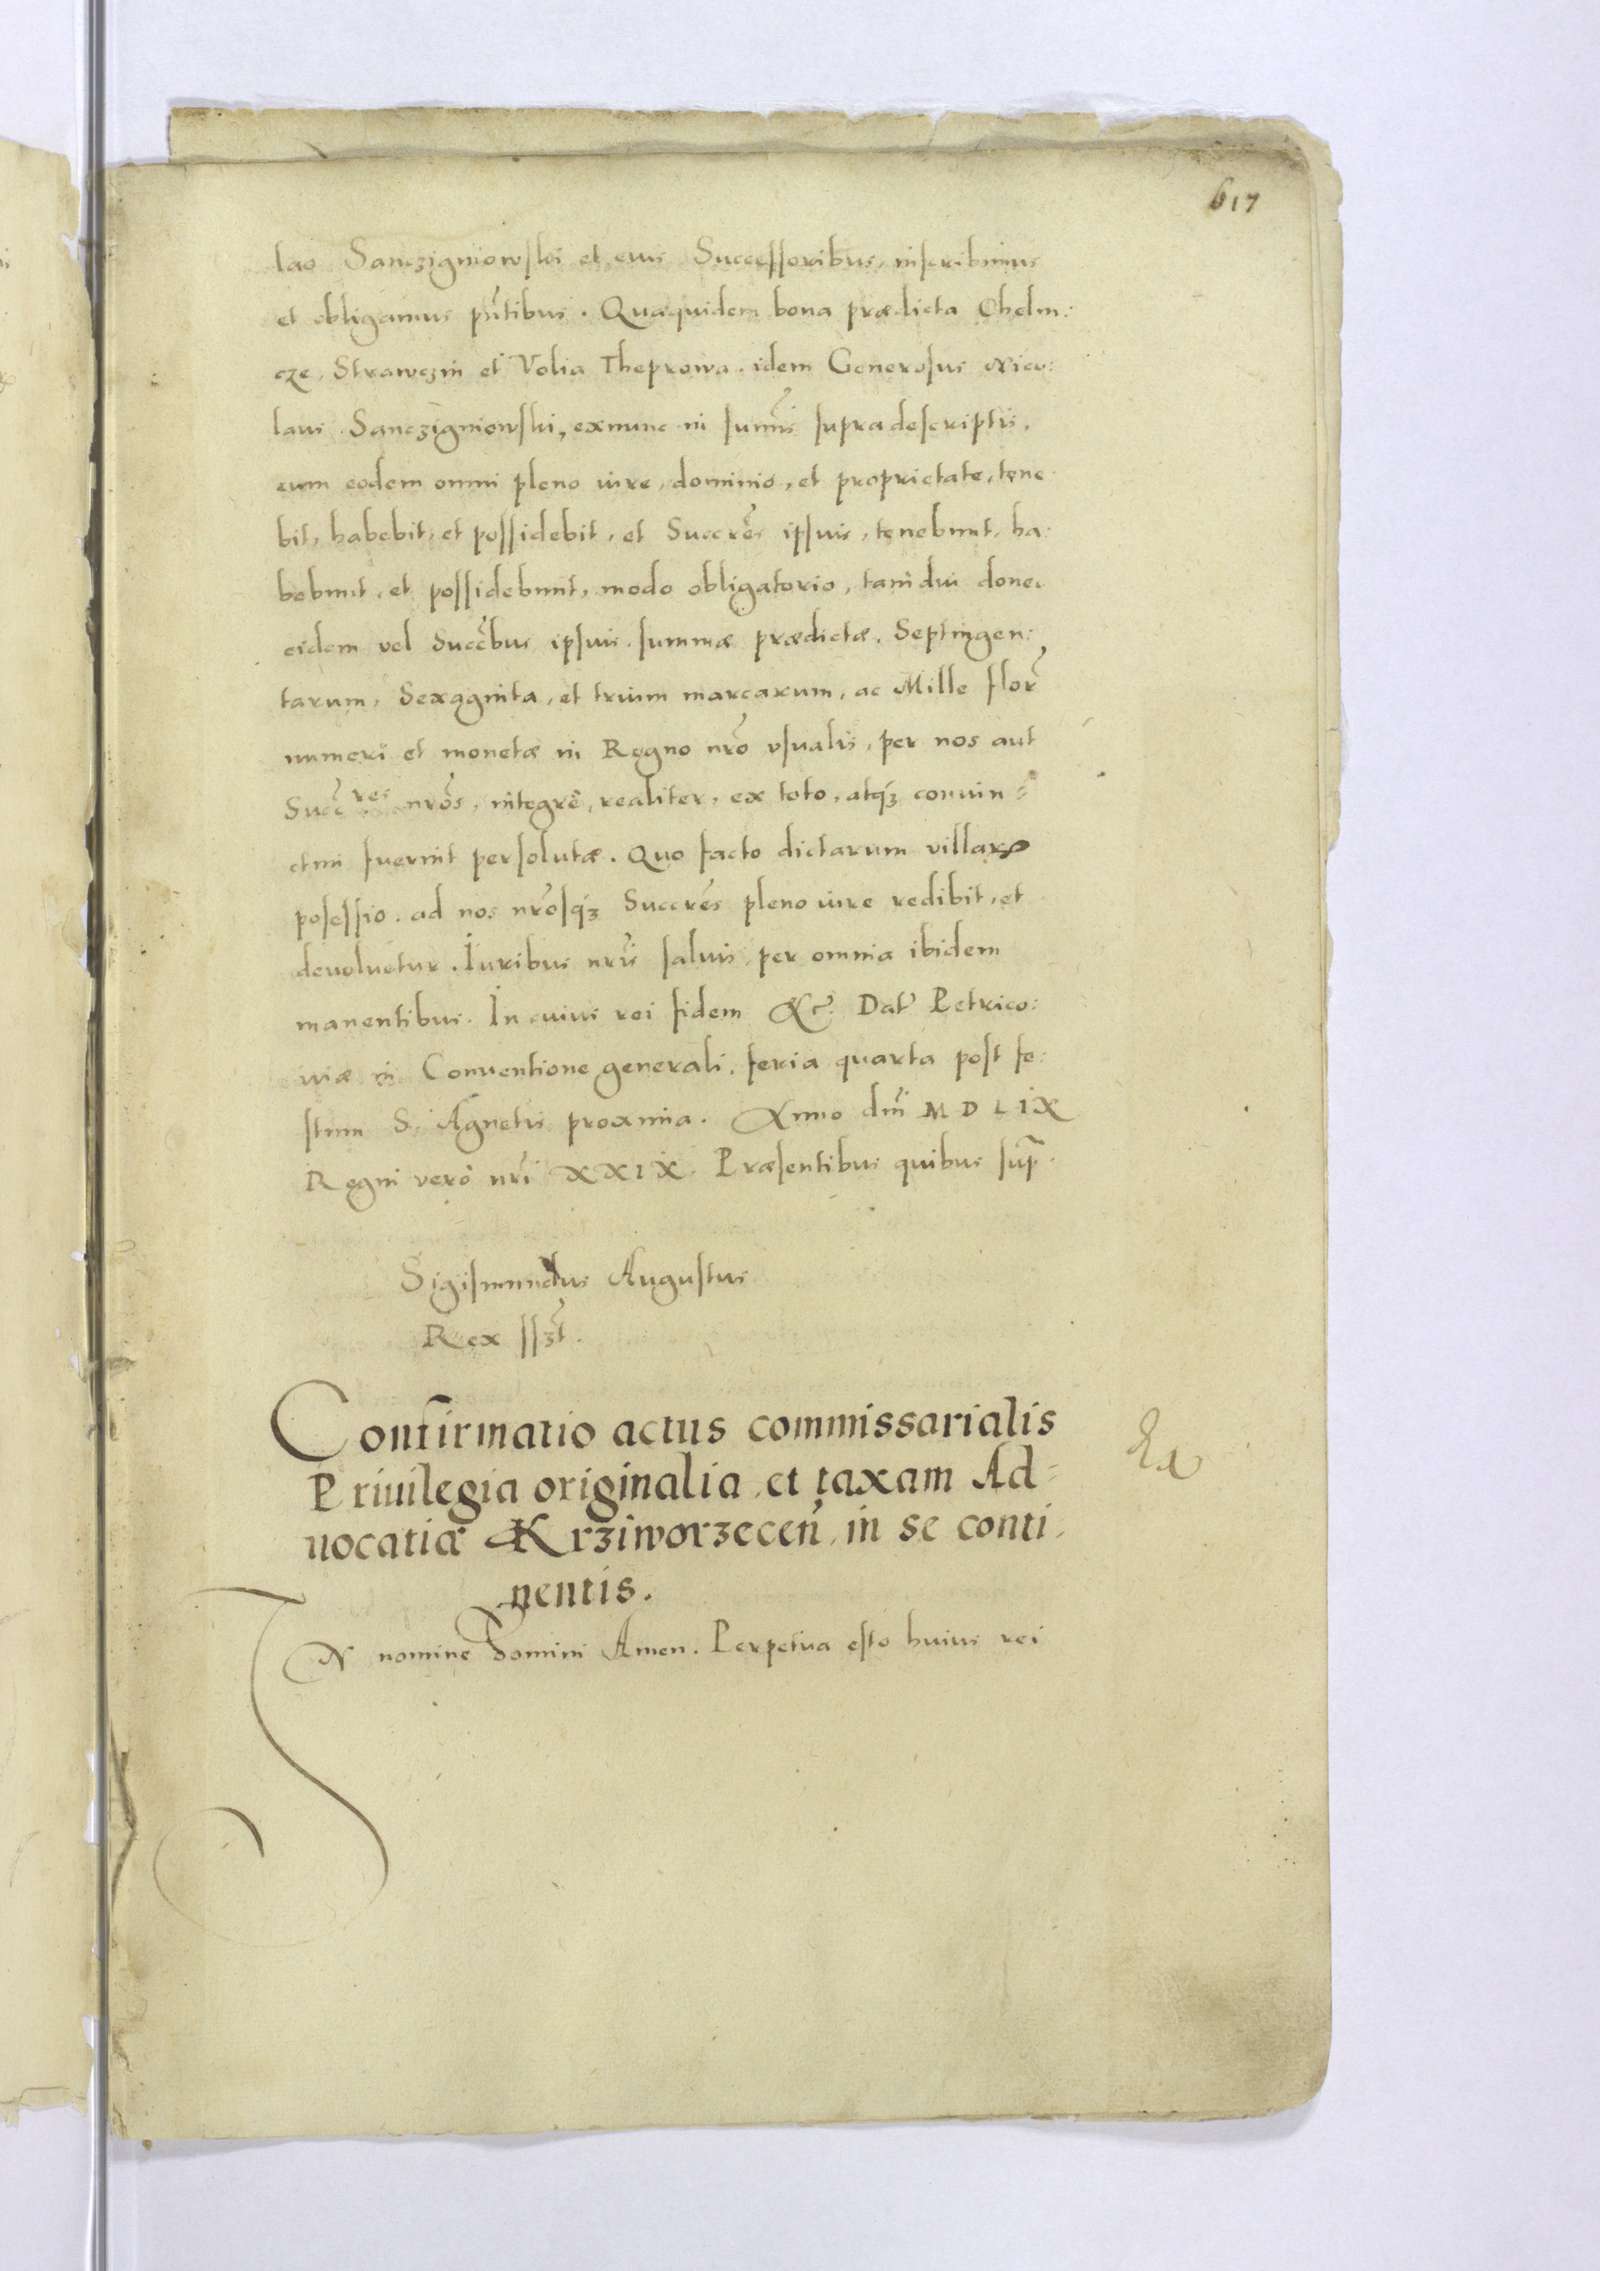 617
lao Sanczigniowski et eius Successoribus, inscribimus
et obligamus pñtibus. Quaequidem bona prædicta Chelm:
cze, Strawczin et Volia Theprowa. idem Generosus Nico:
laus Sanczigniowski, exnunc in sum̃is supradescriptis,
cum eodem omni pleno iure, dominio, et proprietate, tene
bit, habebit, et possidebit, et Succrẽs ipsius, tenebunt, ha:
bebunt, et possidebunt, modo obligatorio, tamdiu donec
eidem vel Succ̃bus ipsius summæ prædictæ, Septingen:
tarum, Sexaginta, et trium marcarum, ac Mille florẽ
numeri et monetæ in Regno nr̃o vsualis, per nos aut
Succ̃res nr̃os, integrè, realiter, ex toto, atq3 coniun=
ctim fuerint persolutæ. Quo facto dictarum villarꝝ
posessio. ad nos nr̃osq3 Succrẽs pleno iure redibit, et
devoluetur. Iuribus nr̃is saluis per omnia ibidem
manentibus. In cuius rei fidem &c̃. Dat̃ Petrico:
uiæ in Conventione generali, feria quarta post fe:
stum S. Agnetis proxima. Anno dñi M D L I X
Regni verò nr̃i X X I X. Præsentibus quibus sup̃.
Sigismundus Augustus
Rex ss3t̃.
Confirmatio actus commissarialis
Priuilegia originalia et taxam Ad=
uocatiæ Krziworzeceñ. in se conti,
nentis.
Ex
IN nomine Domini Amen. Perpetua esto huius rei